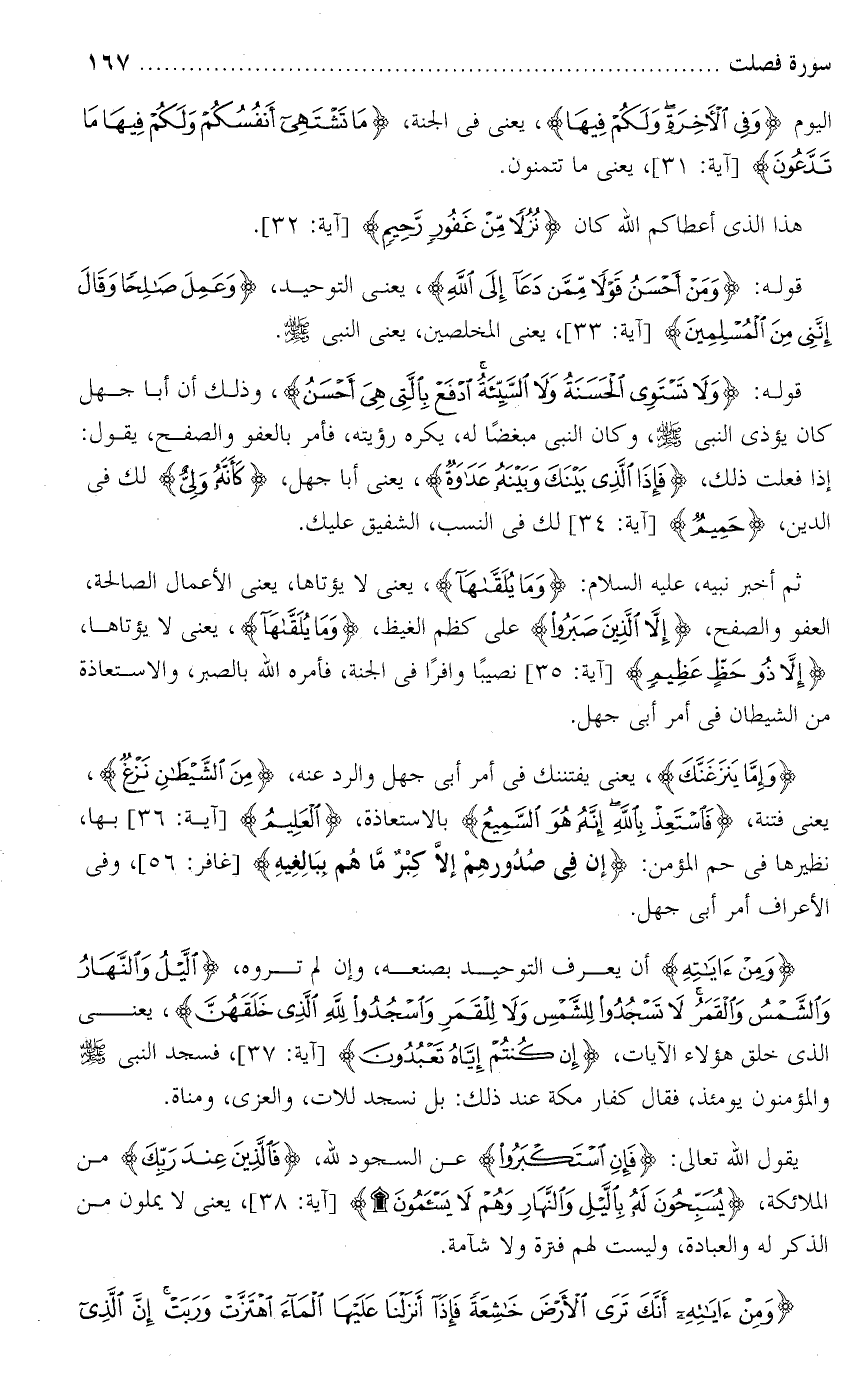 سورة فصلت ........................................................................ ١٦٧
اليوم ﴿وَفِي ٱلْأَخِرَةِۖ وَلَكُمْ فِيهَا﴾، يعنى فى الجنة، ﴿مَا تَشْتَهِىٓ أَنفُسُكُمْ وَلَكُمْ فِيهَا مَا
تَدَّعُونَ﴾ [آية: ٣١]، يعنى ما تتمنون.
هذا الذى أعطاكم الله كان ﴿نُزُلًا مِّنْ غَفُورٍ رَّحِيمٍ﴾ [آية: ٣٢].
قوله: ﴿وَمَنْ أَحْسَنُ قَوْلًا مِّمَّن دَعَآ إِلَى ٱللَّهِ﴾، يعنى التوحيد، ﴿وَعَمِلَ صَٰلِحًا وَقَالَ
إِنَّنِى مِنَ ٱلْمُسْلِمِينَ﴾ [آية: ٣٣]، يعنى المخلصين، يعنى النبى ﷺ.
قوله: ﴿وَلَا تَسْتَوِى ٱلْحَسَنَةُ وَلَا ٱلسَّيِّئَةُۚ ٱدْفَعْ بِٱلَّتِى هِىَ أَحْسَنُ﴾، وذلك أن أبا جهل
كان يؤذى النبى ﷺ، وكان النبى مبغضًا له، يكره رؤيته، فأمر بالعفو والصفح، يقول:
إذا فعلت ذلك، ﴿فَإِذَا ٱلَّذِى بَيْنَكَ وَبَيْنَهُۥ عَدَٰوَةٌ﴾، يعنى أبا جهل، ﴿كَأَنَّهُۥ وَلِىٌّ﴾ لك فى
الدين، ﴿حَمِيمٌ﴾ [آية: ٣٤] لك فى النسب، الشفيق عليك.
ثم أخبر نبيه، عليه السلام: ﴿وَمَا يُلَقَّىٰهَآ﴾، يعنى لا يؤتاها، يعنى الأعمال الصالحة،
العفو والصفح، ﴿إِلَّا ٱلَّذِينَ صَبَرُوا۟﴾ على كظم الغيظ، ﴿وَمَا يُلَقَّىٰهَآ﴾، يعنى لا يؤتاها،
﴿إِلَّا ذُو حَظٍّ عَظِيمٍ﴾ [آية: ٣٥] نصيبًا وافرًا فى الجنة، فأمره الله بالصبر، والاستعاذة
من الشيطان فى أمر أبى جهل.
﴿وَإِمَّا يَنزَغَنَّكَ﴾، يعنى يفتننك فى أمر أبى جهل والرد عنه، ﴿مِنَ ٱلشَّيْطَٰنِ نَزْغٌ﴾،
يعنى فتنة، ﴿فَٱسْتَعِذْ بِٱللَّهِۖ إِنَّهُۥ هُوَ ٱلسَّمِيعُ﴾ بالاستعاذة، ﴿ٱلْعَلِيمُ﴾ [آية: ٣٦] بها،
نظيرها فى حم المؤمن: ﴿إن فِي صُدُورِهِمْ إلاَّ كِبْرٌ مَّا هُم بِبَالِغِيهِ﴾ [غافر: ٥٦]، وفى
الأعراف أمر أبى جهل.
﴿وَمِنْ ءَايَٰتِهِ﴾ أن يعرف التوحيد بصنعه، وإن لم تروه، ﴿ٱلَّيْلُ وَٱلنَّهَارُ
وَٱلشَّمْسُ وَٱلْقَمَرُۚ لَا تَسْجُدُوا۟ لِلشَّمْسِ وَلَا لِلْقَمَرِ وَٱسْجُدُوا۟ لِلَّهِ ٱلَّذِى خَلَقَهُنَّ﴾، يعنى
الذى خلق هؤلاء الآيات، ﴿إِن كُنتُمْ إِيَّاهُ تَعْبُدُونَ﴾ [آية: ٣٧]، فسجد النبى ﷺ
والمؤمنون يومئذ، فقال كفار مكة عند ذلك: بل نسجد للات، والعزى، ومناة.
يقول الله تعالى: ﴿فَإِنِ ٱسْتَكْبَرُوا۟﴾ عن السجود لله، ﴿فَٱلَّذِينَ عِندَ رَبِّكَ﴾ من
الملائكة، ﴿يُسَبِّحُونَ لَهُۥ بِٱلَّيْلِ وَٱلنَّهَارِ وَهُمْ لَا يَسْـَٔمُونَ ۩﴾ [آية: ٣٨]، يعنى لا يملون من
الذكر له والعبادة، وليست لهم فترة ولا شآمة.
﴿وَمِنْ ءَايَٰتِهِۦٓ أَنَّكَ تَرَى ٱلْأَرْضَ خَٰشِعَةً فَإِذَآ أَنزَلْنَا عَلَيْهَا ٱلْمَآءَ ٱهْتَزَّتْ وَرَبَتْۚ إِنَّ ٱلَّذِىٓ